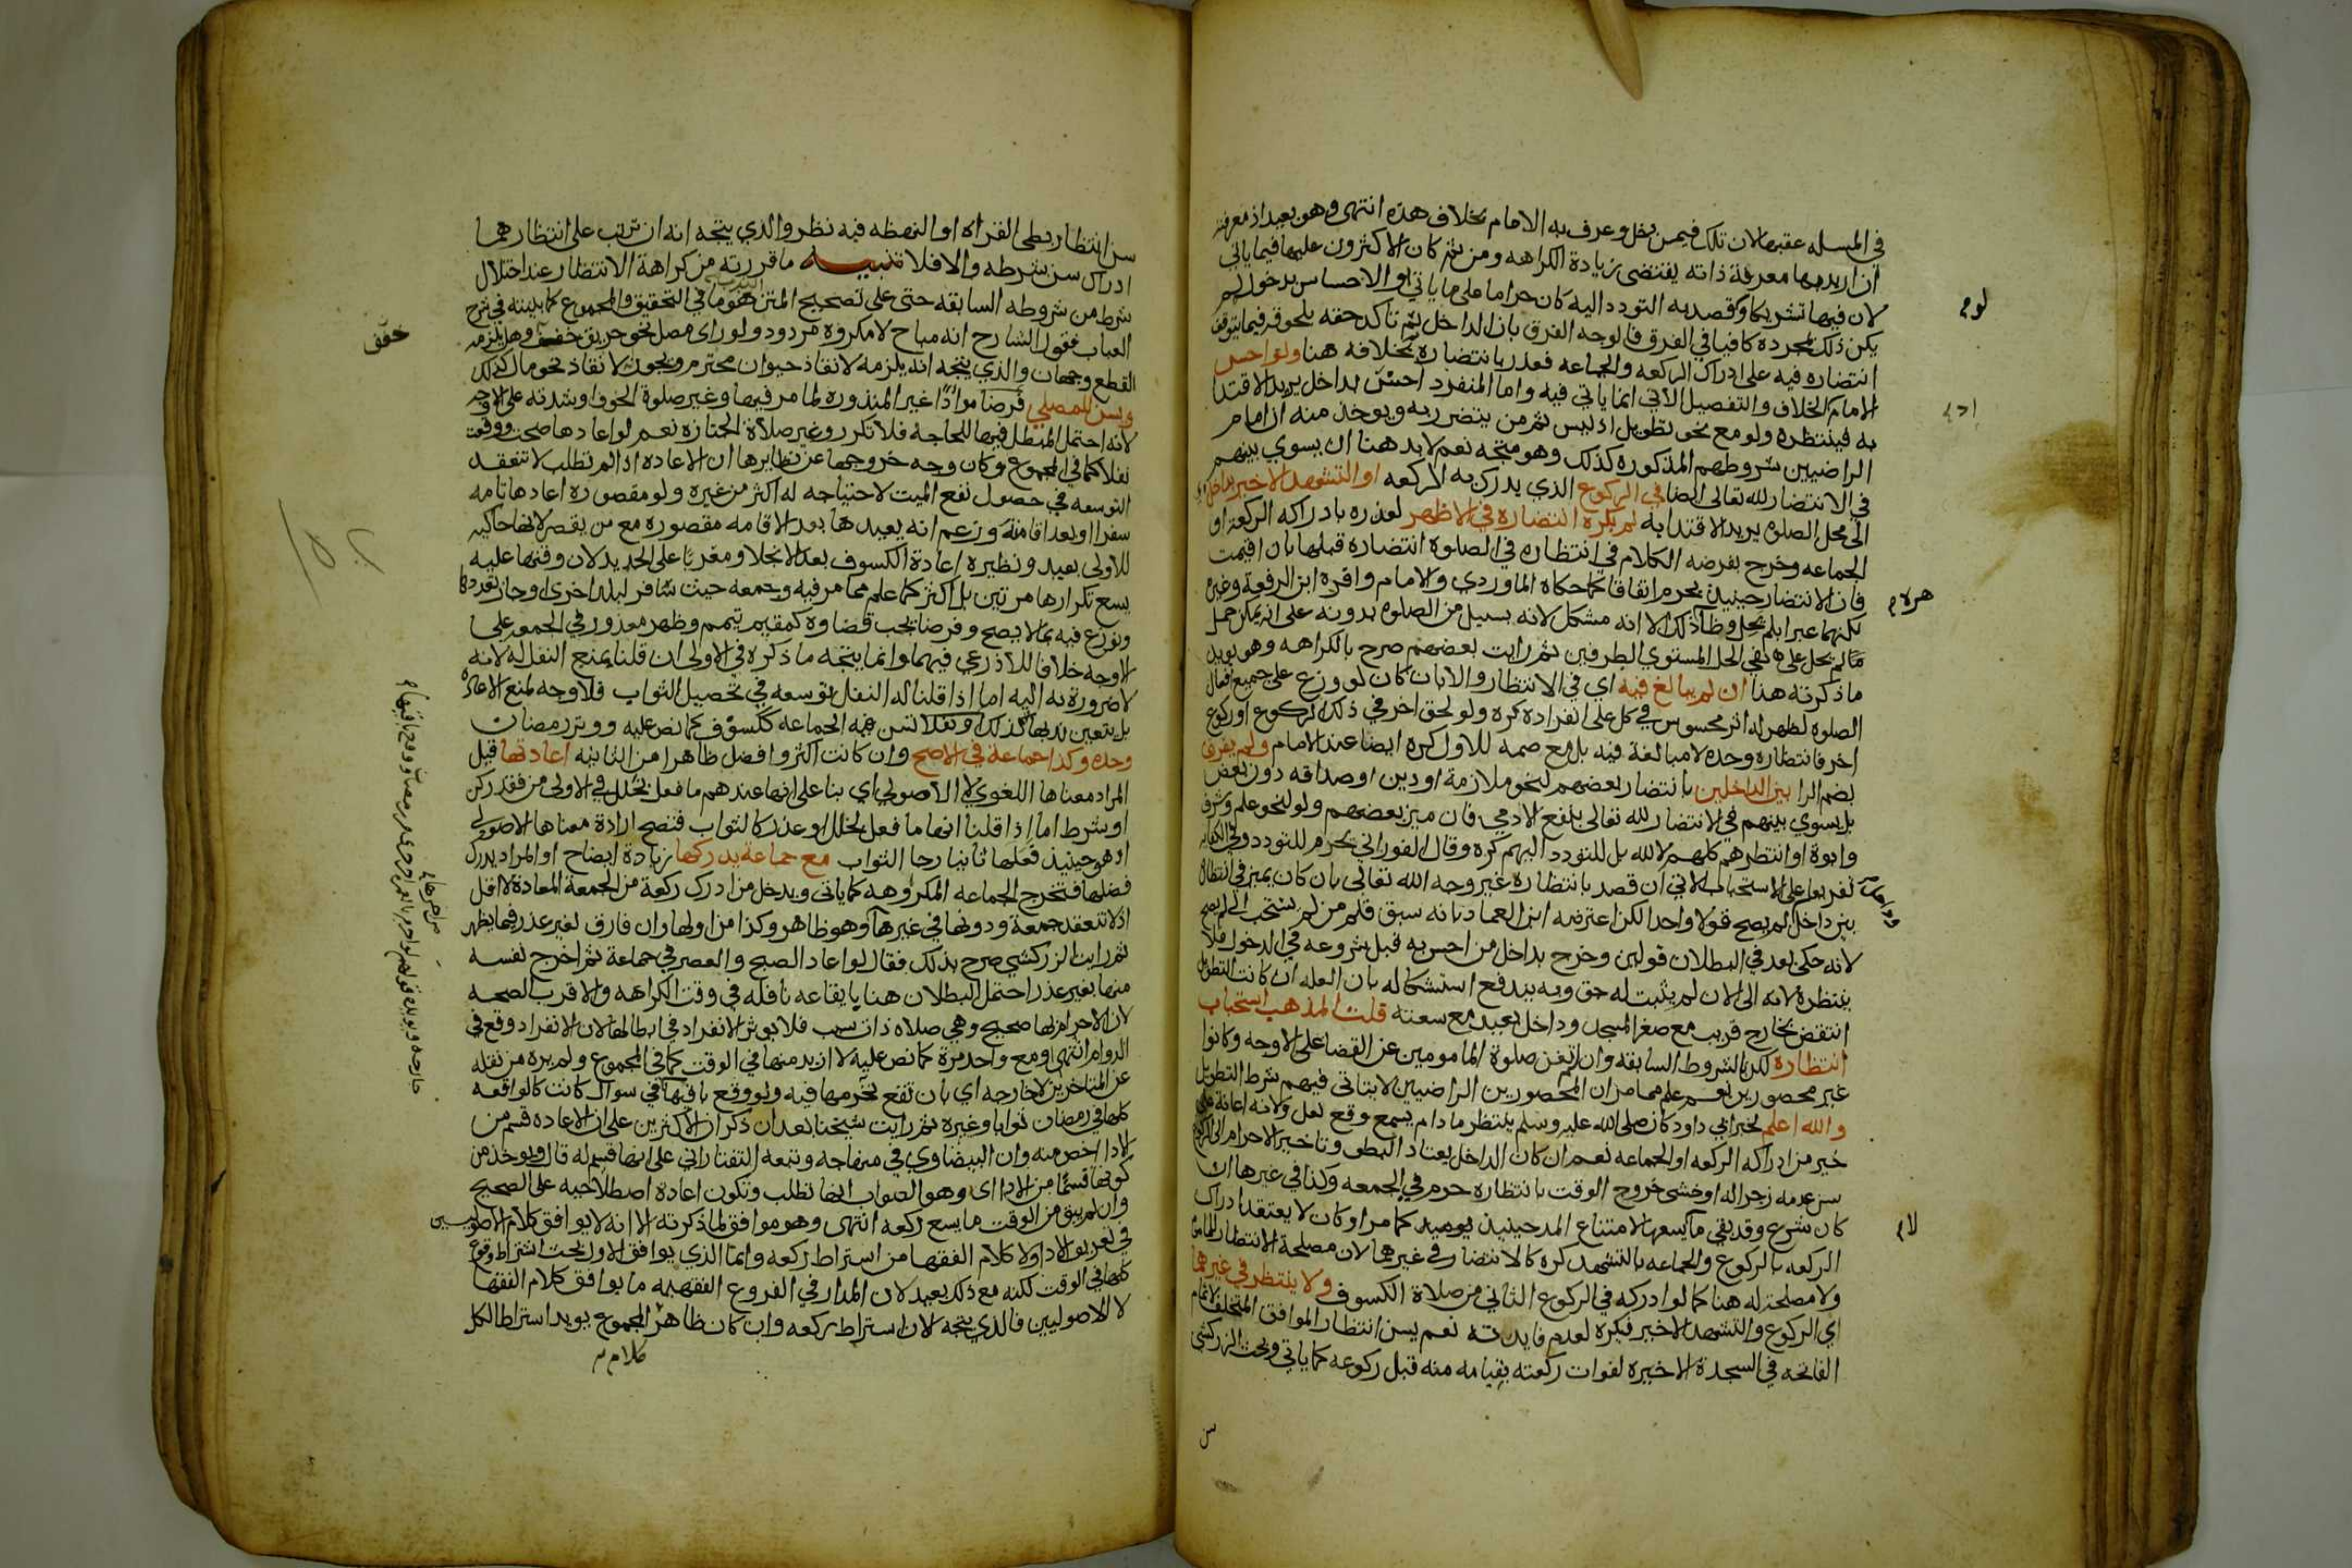 في المسله عقبها لان تلك فيمن دخل وعرف به الامام بخلاف هذه انتهى وهو بعيد اذ معرفته
ان اريد بها معرفة ذاته يقتضى زيادة الكراهه ومن ثم كان الاكثرون عليها فيما ياتي
لان فيها تشريكا وقصد به التودد اليه كان حراما على ما ياتي او الاحساس بدخوله لم
يكن ذلك بمجرده كافيا في الفرق فالوجه الفرق بان الداخل ثم تاكد حقه بلحوقه فيما يتوقف
انتضاره فيه على ادراك الركعه والجماعه فعذر بانتضاره بخلافه هنا ولو احس
الامام الخلاف والتفصيل الاتي انما ياتي فيه واما المنفرد احس بداخل يريد الاقتدا
به فينتظره ولو مع نحو تطويل اذ ليس ثم من يتضرر به ويوخذ منه ان امام
الراضيين بشروطهم المذكوره كذلك وهو متجه نعم لابد هنا ان يسوي بينهم
في الانتضار لله تعالى ايضا في الركوع الذي يدرك به الركعه او التشهد الاخير بداخل
الى محل الصلوه يريد الاقتدا به لم يكره انتضاره في الاظهر لعذره بادراكه الركعة او
الجماعه وخرج بفرضه الكلام في انتظاره في الصلوة انتضاره قبلها بان اقيمت
فان الانتضار حينيذ يحرم اتفاقا كما حكاه الماوردي والامام واقره ابن الرفعة وغيره
لكنهما عبرا بلم يحل وظاهر ذلك الا انه مشكل لانه بسبيل من الصلوه بدونه على انه يمكن حمل
ما لم يحل على نفي الحل المستوي الطرفين ثم رايت بعضهم صرح بالكراهه وهو يويد
ما ذكرته هنا ان لم يبالغ فيه اي في الانتظار والا بان كان لو وزع على جميع افعال
الصلوه لظهر له اثر محسوس في كل على انفراده كره ولو لحق اخر في ذلك الركوع او ركوع
اخر فانتظاره وحده لا مبالغة فيه بل مع ضمه للاول كره ايضا عند الامام ولم يفرق
بضم الرا بين الداخلين بانتضار بعضهم لنحو ملازمة او دين او صداقه دون بعض
بل يسوي بينهم في الانتضار لله تعالى بنفع الادمي فان ميز بعضهم ولو لنحو علم وشرف
وابوة او انتظرهم كلهم لا لله بل للتودد اليهم كره وقال الفوراني يحرم للتودد وفي الكفايه
تفريعا على الاستحباب الاتي ان قصد بانتظاره غير وجه الله تعالى بان كان يميز في انتظاره
بين داخل لم يصح قولا واحدا لكن اعترضه ابن العماد بانه سبق قلم من لم يستحب الى لم يصح
لانه حكى بعد في البطلان قولين وخرج بداخل من احس به قبل شروعه في الدخول فلا
ينتظره لانه الى الان لم يثبت له حق وبه يندفع استشكاله بان العله ان كانت التطويل
انتقض بخارج قريب مع صغر المسجد وداخل بعيد مع سعته قلت المذهب استحباب
انتظاره لكن بالشروط السابقه وان لم يغن صلوة المامومين عن القضا على الاوجه وكانوا
غير محصورين نعم علم مما مر ان المحصورين الراضيين لا يتاتى فيهم شرط التطويل
والله اعلم لخبر ابي داود كان صلى الله عليه وسلم ينتظر ما دام يسمع وقع نعل ولانه اعانه على
خير من ادراكه الركعه او الجماعه نعم ان كان الداخل يعتاد البطى وتاخير الاحرام الى الركوع
سن عدمه زجرا له او خشى خروج الوقت بانتظاره حرم في الجمعه وكذا في غيرها ان
كان شرع وقد بقي ما يسعها لامتناع المد حينيذ كما مر او كان لا يعتقد ادراك
الركعه بالركوع والجماعه بالتشهد كره كالانتضار في غيرهما لان مصلحة الانتظار
ولا مصلحة له هنا كما لو ادركه في الركوع الثاني من صلاة الكسوف ولا ينتظر في غيرهما
اي الركوع والتشهد الاخير فيكره لعدم فايدته نعم يسن انتظار الموافق المتخلف لاتمام
الفاتحه في السجدة الاخيره لفوات ركعته بقيامه منه قبل ركوعه كما ياتي وبحث الزركشي
سن
سن انتظار بطى القراه او النهضه فيه نظر والذي يتجه انه ان ترتب على انتظارهما
ادراك سن بشرطه والا فلا تنبيه ما قررته من كراهة الانتظار عند اختلال
شرط من شروطه السابقه حتى على تصحيح المتن هو ما في التحقيق والمجموع كما بينته في شرح
العباب فقول الشارح انه مباح لا مكروه مردود ولو راى مصل نحو حريق خفف وهل يلزمه
القطع وجهان والذي يتجه انه يلزمه لانقاذ حيوان محترم ويجوز لانقاذ نحو مال كذلك
ويسن للمصلي فرضا مودا غير المنذوره لما مر فيها وغير صلوة الخوف او شدته على الاوجه
لانه احتمل المبطل فيها للحاجه فلا تكرر وغير صلاة الجنازه نعم لو اعادها صحت ووقعت
نفلا كما في المجموع وكان وجه خروجها عن نظايرها ان الاعاده اذا لم تطلب لا تنعقد
التوسعه في حصول نفع الميت لاحتياجه له اكثر من غيره ولو مقصوره اعادها تامه
سفرا او بعد اقامته وزعم انه يعيدها بعد الاقامه مقصوره مع من يقصر لانها حاكيه
للاولى بعيد ونظيره اعادة الكسوف بعد الانجلا ومغربا على الجديد لان وقتها عليه
يسع تكرارها مرتين بل اكثر كما علم مما مر فيه وجمعه حيث سافر لبلد اخرى او جاز تعددها
ونوزع فيه بما لا يصح وفرضا يجب قضاوه كمقيم يتمم وظهر معذور في الجمعه على
الاوجه خلافا للاذرعي فيهما وانما يتجه ما ذكره في الاولى ان قلنا يمنع النفل له لانه
لا ضرورة به اليه اما اذا قلنا له النفل توسعه في تحصيل الثواب فلا وجه لمنع الاعاده
بل يتعين ندبها كذلك ونفلا تسن فيه الجماعه ككسوف كما نص عليه ووتر رمضان
وحده وكذا جماعة في الاصح وان كانت اكثر وافضل ظاهرا من الثانيه اعادتها قيل
المراد معناها اللغوي لا الاصولي اي بنا على انها عندهم ما فعل لخلل في الاولى من فقد ركن
او شرط اما اذا قلنا انها ما فعل لخلل او عذر كالثواب فتصح ارادة معناها الاصولي
اذ هو حينيذ فعلها ثانيا رجا الثواب مع جماعة يدركها زيادة ايضاح او المراد يدرك
فضلها فتخرج الجماعه المكروهه كما ياتي ويدخل من ادرك ركعة من الجمعة المعادة لا اقل
اذ لا تنعقد جمعة ودونها في غيرها وهو ظاهر وكذا من اولها وان فارق لغير عذر فيما يظهر
ثم رايت الزركشي صرح بذلك فقال لو اعاد الصبح والعصر في جماعة ثم اخرج نفسه
منها بغير عذر احتمل البطلان هنا بايقاعه نافله في وقت الكراهه والاقرب الصحه
لان الاحرام بها صحيح وهي صلاه ذات سبب فلا يوثر الانفراد في ابطالها لان الانفراد وقع في
الدوام انتهى ومع واحد مرة كما نص عليه لا ازيد منها في الوقت كما في المجموع ولم يره من نقله
عن المتاخرين لا خارجه اي بان تقع تحرمها فيه ولو وقع باقيها في سوال كانت كالواقعه
كلها في رمضان ثوابا وغيره ثم رايت شيخنا بعد ان ذكر ان الاكثرين على ان الاعاده قسم من
الادا اخص منه وان البيضاوي في منهاجه وتبعه التفتازاني على انها قسيم له قال ويوخذ من
كونها قسما من الادا اي وهو الصواب انها تطلب وتكون اعادة اصطلاحيه على الصحيح
وان لم يبق من الوقت ما يسع ركعه انتهى وهو موافق لما ذكرته الا انه لا يوافق كلام الاصوليين
في تعريف الادا ولا كلام الفقها من اشتراط ركعه وانما الذي يوافق الاول بحث اشتراط وقوع
كلها في الوقت لكنه مع ذلك بعيد لان المدار في الفروع الفقهيه ما يوافق كلام الفقها
لا الاصوليين فالذي يتجه الان اشتراط ركعه وان كان ظاهر المجموع يويد اشتراط الكل
كلام